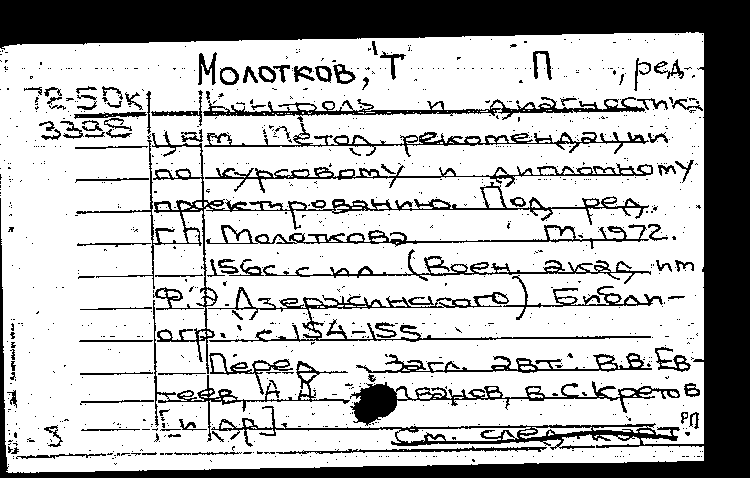 Молотков, Т П , ред.
72-50к Контроль и диагностика
3398 ЦВМ. Метод. рекомендации
по курсовому и дипломному
проектированию. Под ред.
Г.П. Молоткова М., 1972.
156с. с ил. (Воен. акад им.
Ф.Э. Дзержинского). Библи-
огр.: с. 154-155.
Перед загл. авт.: В.В. Ев-
теев, А.Д. Иванов, В.С. Кретов
[и др].
См. след. карт. РП